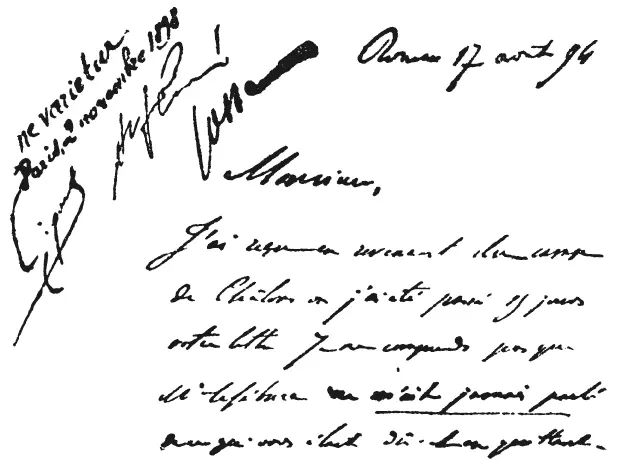 ne varietur
Paris, 2 novembre 1898
Rouen 17 août 94
Monsieur,
J'ai reçu en revenant du camp
de Châlons où j'ai été passé 15 jours
votre lettre Je ne comprends pas que
Me Lefébure ne m'ait jamais parlé
de ce qui vous était dû.